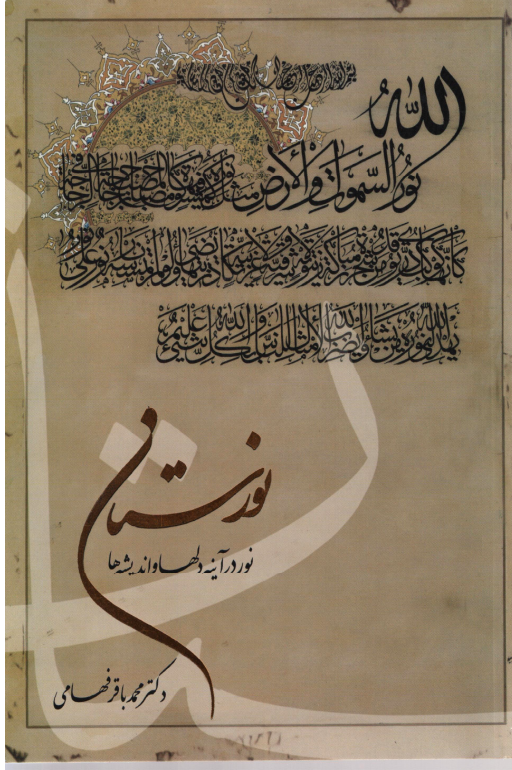 الله
نُورُ السَّمٰوَاتِ وَالْأَرْضِ مَثَلُ نُورِهِ كَمِشْكٰوةٍ فِيهَا مِصْبَاحٌ الْمِصْبَاحُ فِي زُجَاجَةٍ الزُّجَاجَةُ
كَأَنَّهَا كَوْكَبٌ دُرِّيٌّ يُوقَدُ مِنْ شَجَرَةٍ مُبَارَكَةٍ زَيْتُونَةٍ لَا شَرْقِيَّةٍ وَلَا غَرْبِيَّةٍ يَكَادُ زَيْتُهَا يُضِيءُ وَلَوْ لَمْ تَمْسَسْهُ نَارٌ نُورٌ عَلَى نُورٍ
يَهْدِي اللهُ لِنُورِهِ مَنْ يَشَاءُ وَيَضْرِبُ اللهُ الْأَمْثَالَ لِلنَّاسِ وَاللهُ بِكُلِّ شَيْءٍ عَلِيمٌ
نورستان
نور در آینه دلها و اندیشه ها
دکتر محمد باقر فهامی